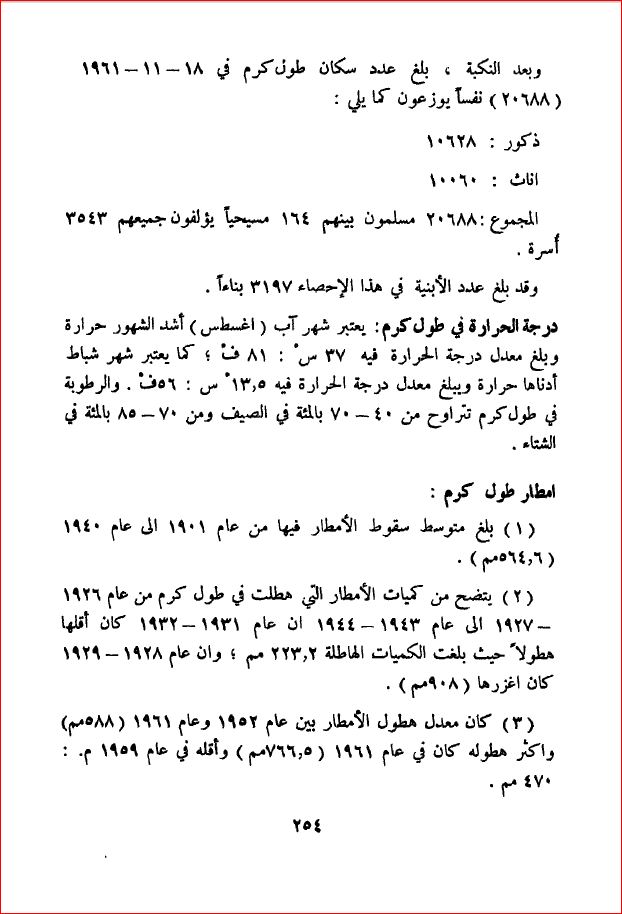 وبعد النكبة ، بلغ عدد سكان طول كرم في ١٨ – ١١ – ١٩٦١
(٢٠٦٨٨) نفساً يوزعون كما يلي :
ذكور : ١٠٦٢٨
اناث : ١٠٠٦٠
المجموع : ٢٠٦٨٨ مسلمون بينهم ١٦٤ مسيحياً يؤلفون جميعهم ٣٥٤٣
أسرة .
وقد بلغ عدد الأبنية في هذا الإحصاء ٣١٩٧ بناءاً .
درجة الحرارة في طول كرم : يعتبر شهر آب ( اغسطس ) أشد الشهور حرارة
وبلغ معدل درجة الحرارة فيه ٣٧ س° : ٨١ ف° ؛ كما يعتبر شهر شباط
أدناها حرارة ويبلغ معدل درجة الحرارة فيه ١٣,٥° س : ٥٦ف° . والرطوبة
في طول كرم تتراوح من ٤٠ – ٧٠ بالمئة في الصيف ومن ٧٠ – ٨٥ بالمئة في
الشتاء .
امطار طول كرم :
(١) بلغ متوسط سقوط الأمطار فيها من عام ١٩٠١ الى عام ١٩٤٠
(٥٦٤,٦مم) .
(٢) يتضح من كميات الأمطار التي هطلت في طول كرم من عام ١٩٢٦
– ١٩٢٧ الى عام ١٩٤٣ – ١٩٤٤ ان عام ١٩٣١ – ١٩٣٢ كان أقلها
هطولاً حيث بلغت الكميات الهاطلة ٢٢٣,٢ مم ؛ وان عام ١٩٢٨ – ١٩٢٩
كان اغزرها (٩٠٨مم) .
(٣) كان معدل هطول الأمطار بين عام ١٩٥٢ وعام ١٩٦١ (٥٨٨مم)
واكثر هطوله كان في عام ١٩٦١ (٧٦٦,٥مم) وأقله في عام ١٩٥٩ م. :
٤٧٠ مم .
٢٥٤